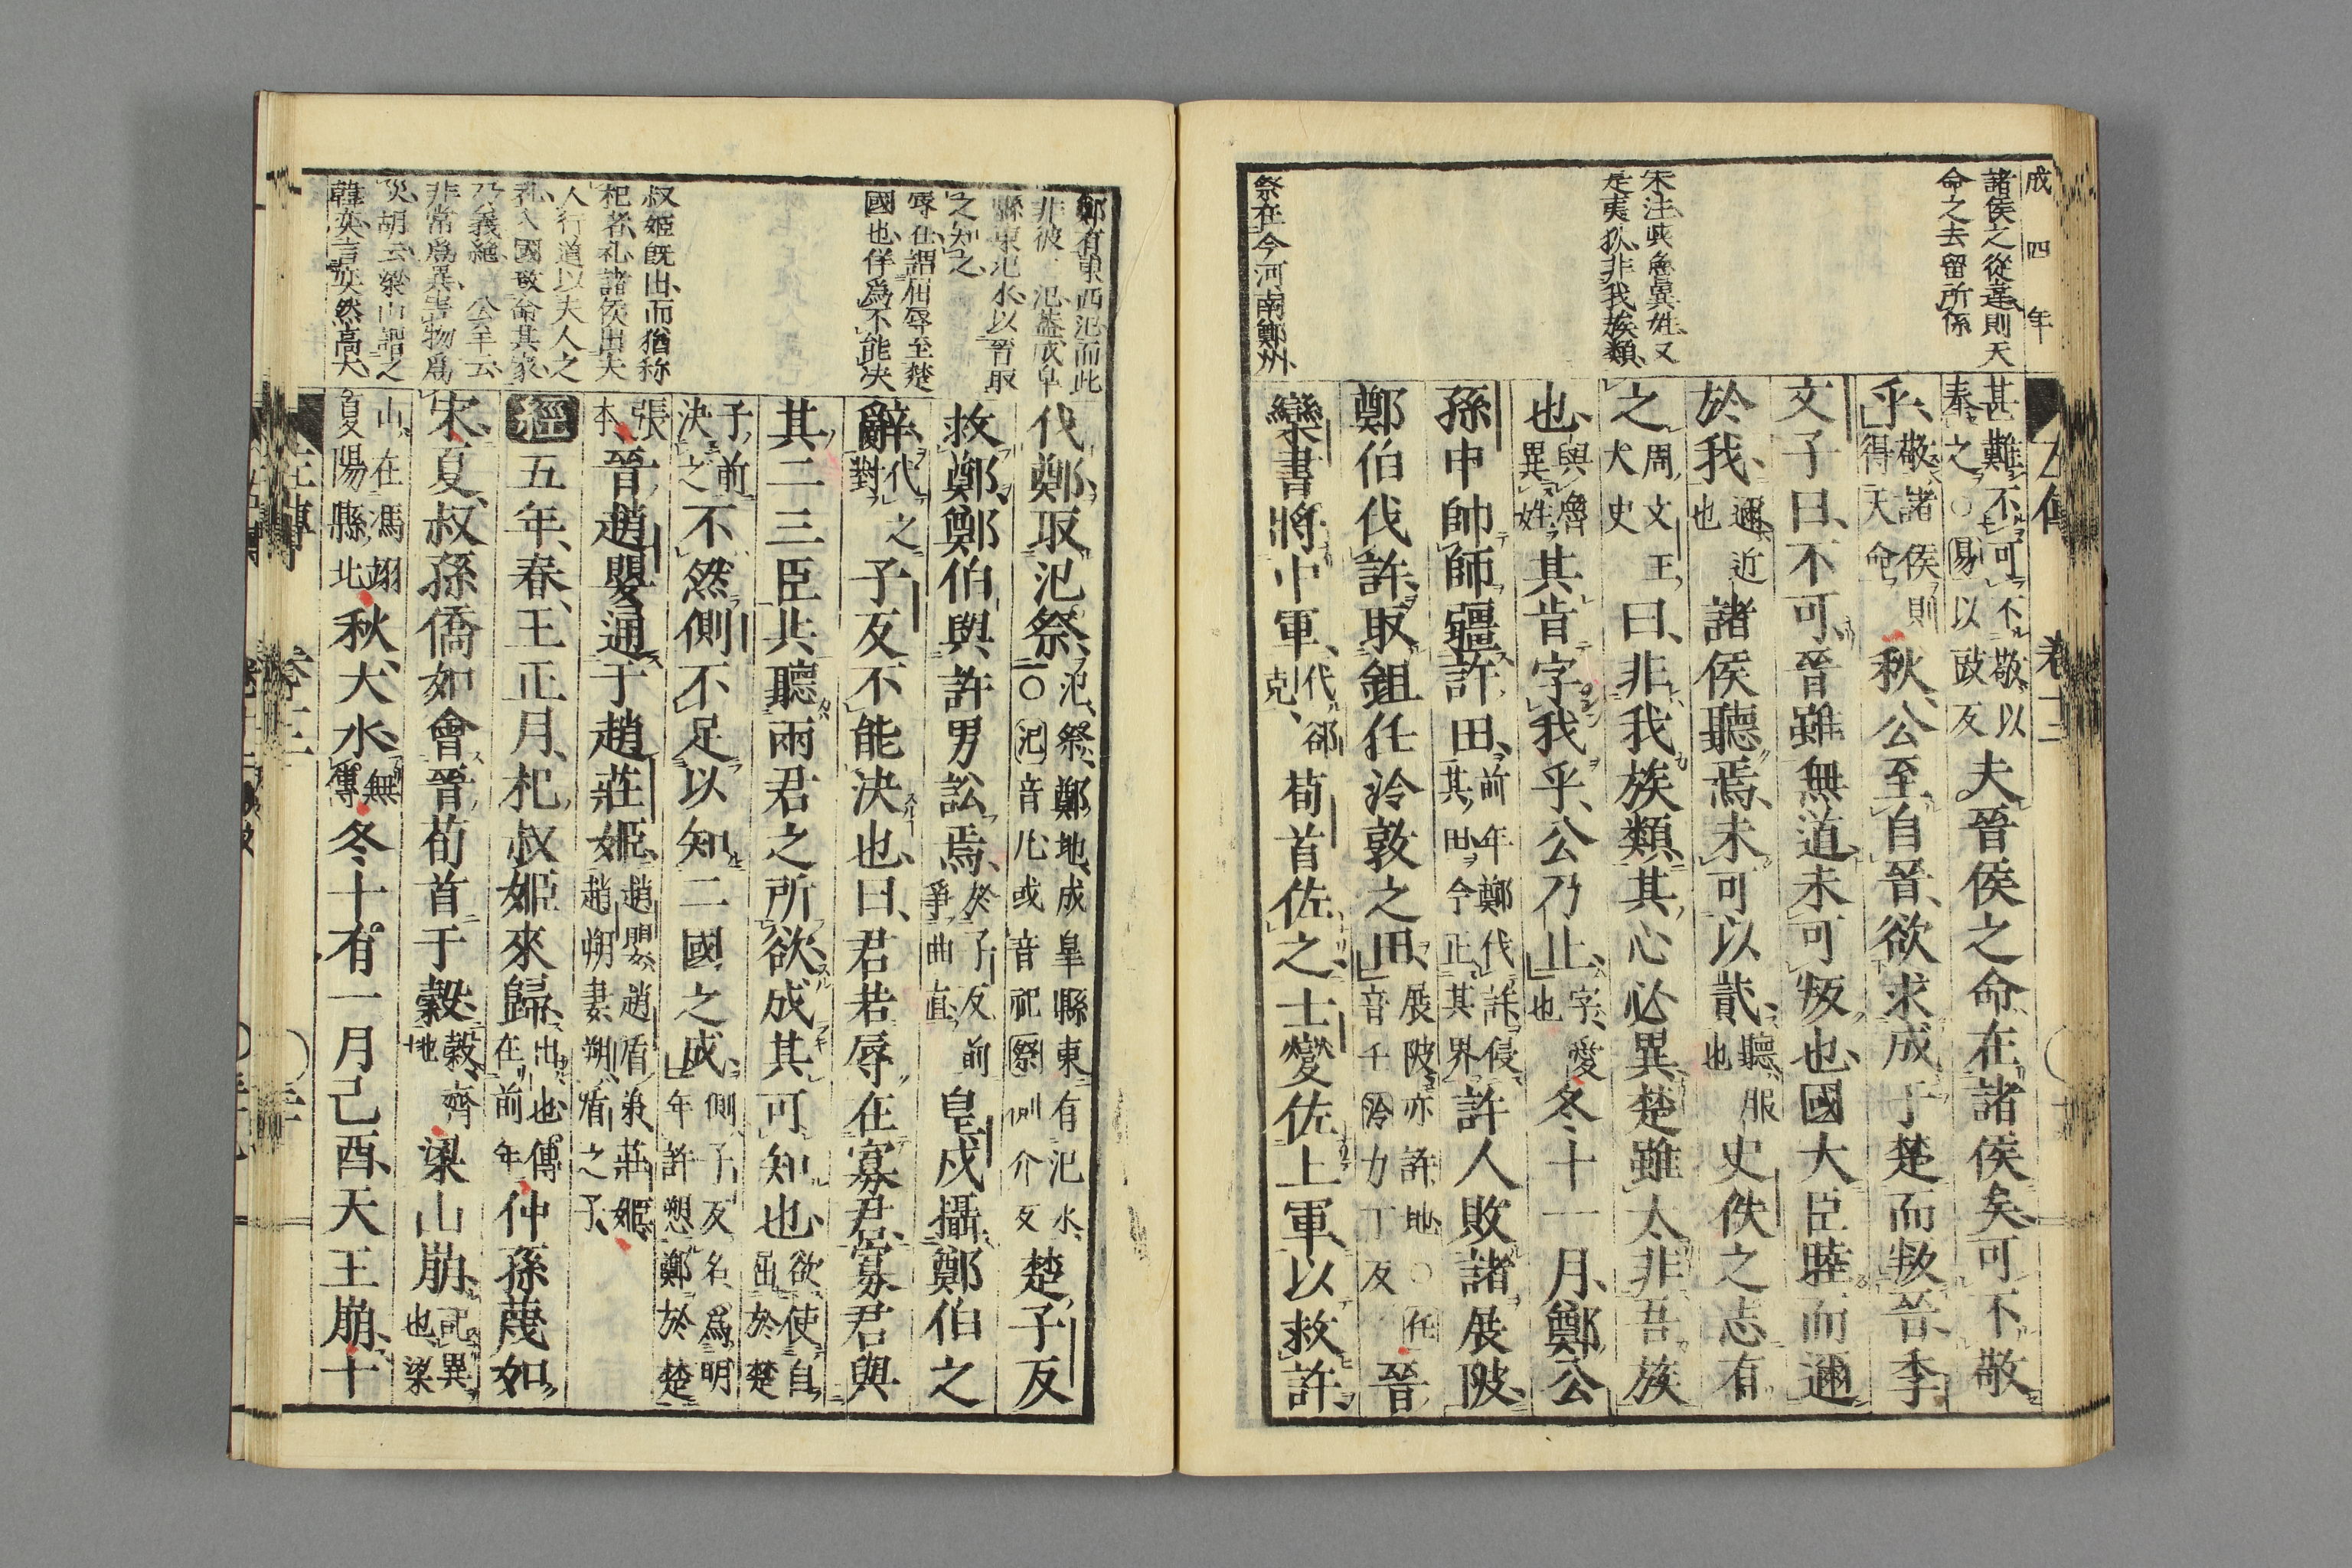 成四年
諸侯之從違則天
命之去留所係
宋注此魯異姓又
是夷狄非我族類
祭在今河南鄭州
左傳 卷十二
甚難不可不敬以
奉之○易以豉反
夫晉侯之命在諸侯矣可不敬
乎敬諸侯則得天命秋公至自晉欲求成于楚而叛晉季
文子曰不可晉雖無道未可叛也國大臣睦而邇
於我邇近也諸侯聽焉未可以貳聽服也史佚之志有
之周文王大史曰非我族類其心必異楚雖大非吾族
也與魯異姓其肯字我乎公乃止字愛也冬十一月鄭公
孫申帥師疆許田前年鄭伐許侵其田今正其界許人敗諸展陂
鄭伯伐許取鉏任泠敦之田展陂亦許地○任音壬泠力丁反晉
欒書將中軍代郤克荀首佐之士燮佐上軍以救許
鄭有東西氾而此
非彼氾蓋成皐
縣東氾水以晉取
之知之
辱在謂相辱至楚
國也佯爲不能決
叔姬既出而猶称
杞者礼諸侯出夫
人行道以夫人之
礼入國致命其家
乃義絶 公羊云
非常爲異害物爲
災胡云梁山謂之
韓奕言奕然高大
伐鄭取氾祭氾祭鄭地成皐縣東有氾水○氾音凡或音祀祭側介反楚子反
救鄭鄭伯與許男訟焉於子反前爭曲直皇戌攝鄭伯之
辭代之對子反不能決也曰君若辱在寡君寡君與
其二三臣共聽兩君之所欲成其可知也欲使自屈於楚
子前決之不然側不足以知二國之成側子反名爲明年許愬鄭於楚
張本晉趙嬰通于趙莊姬趙嬰趙盾弟莊姬趙朔妻朔盾之子
經五年春王正月杞叔姬來歸出也傳在前年仲孫蔑如
宋夏叔孫僑如會晉荀首于穀穀齊地梁山崩記異也梁
山在馮翊夏陽縣北秋大水無傳冬十有一月己酉天王崩十